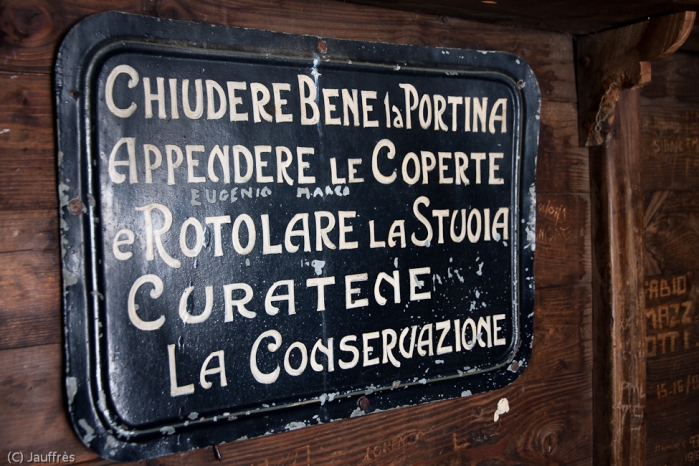 CHIUDERE BENE la PORTINA
APPENDERE LE COPERTE
EUGENIO MARCO
e ROTOLARE LA STUOIA
CURATENE
LA CONSERVAZIONE
FABIO
MAZZ
OTTI
15-16
(C) Jauffrès